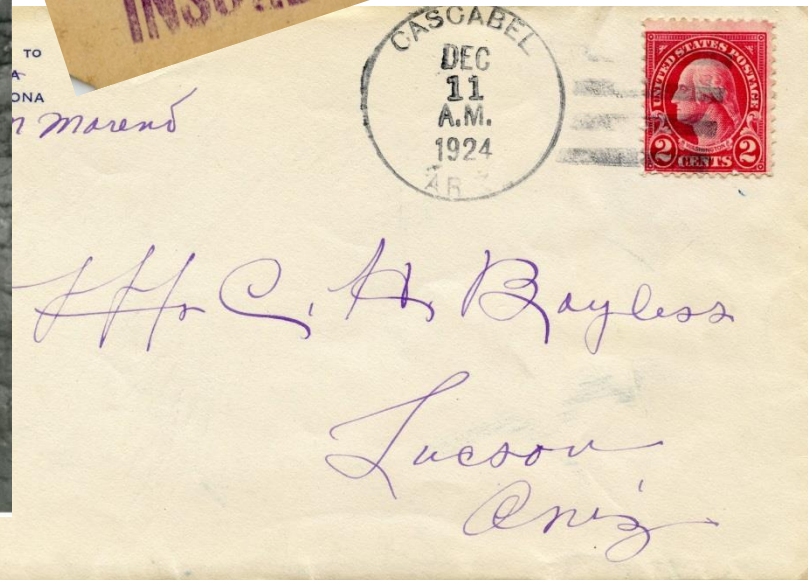 INSURED
TO
A
ONA
n Moreno
CASCABEL
DEC
11
A.M.
1924
AR
UNITED STATES POSTAGE
WASHINGTON
2 CENTS 2
Mr C. H. Bayless
Tucson
Ariz